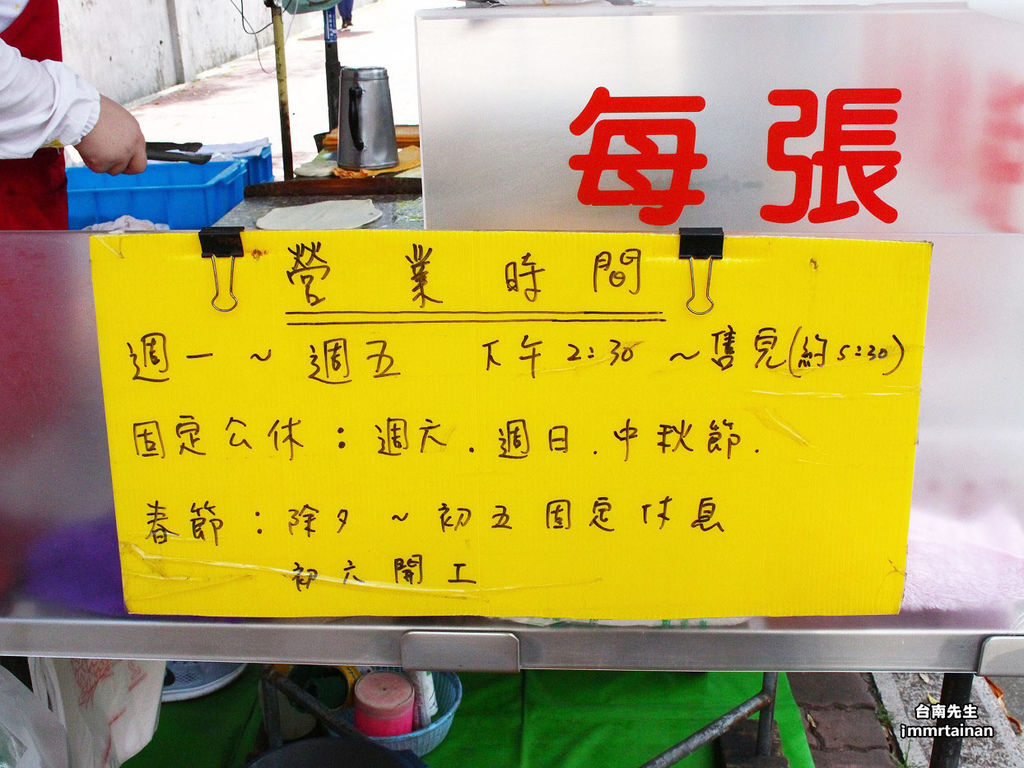 每張
營業時間
週一～週五 下午2:30～售完(約5:30)
固定公休：週六.週日.中秋節.
春節：除夕～初五固定休息
初六開工
台南先生
jmmrtainan